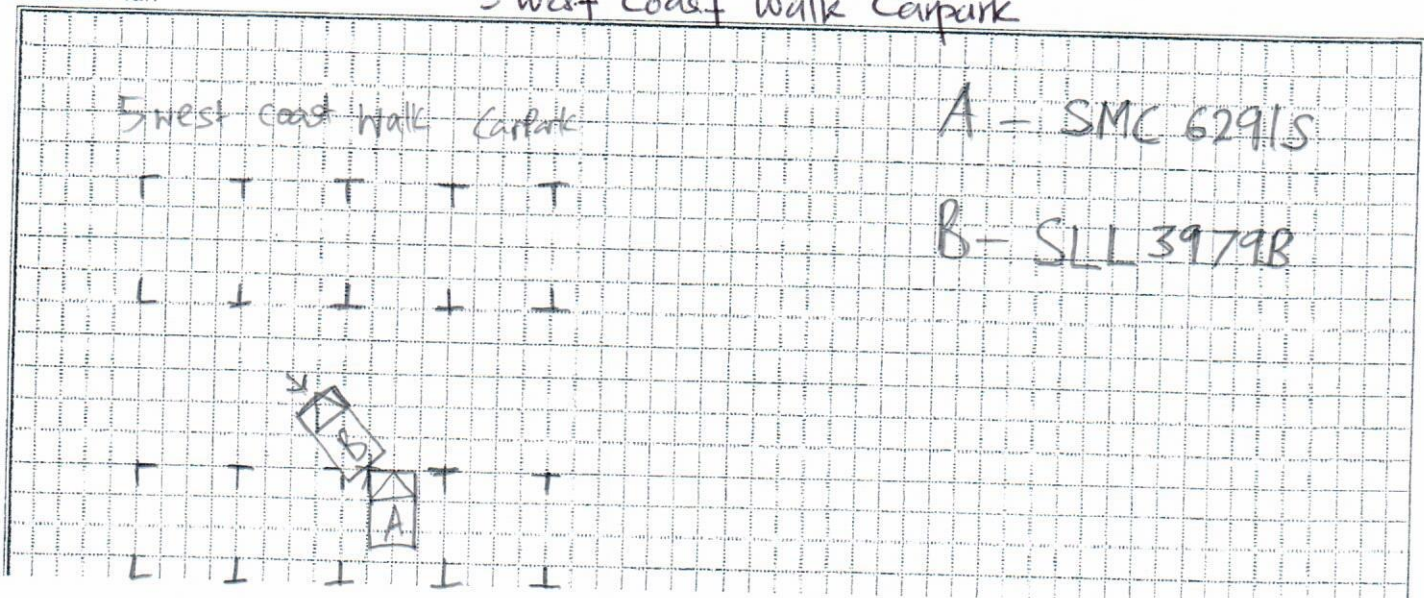 5 West Coast Walk Carpark
5 west coast Walk Carpark
A - SMC 6291S
B - SLL 3979B
B
A